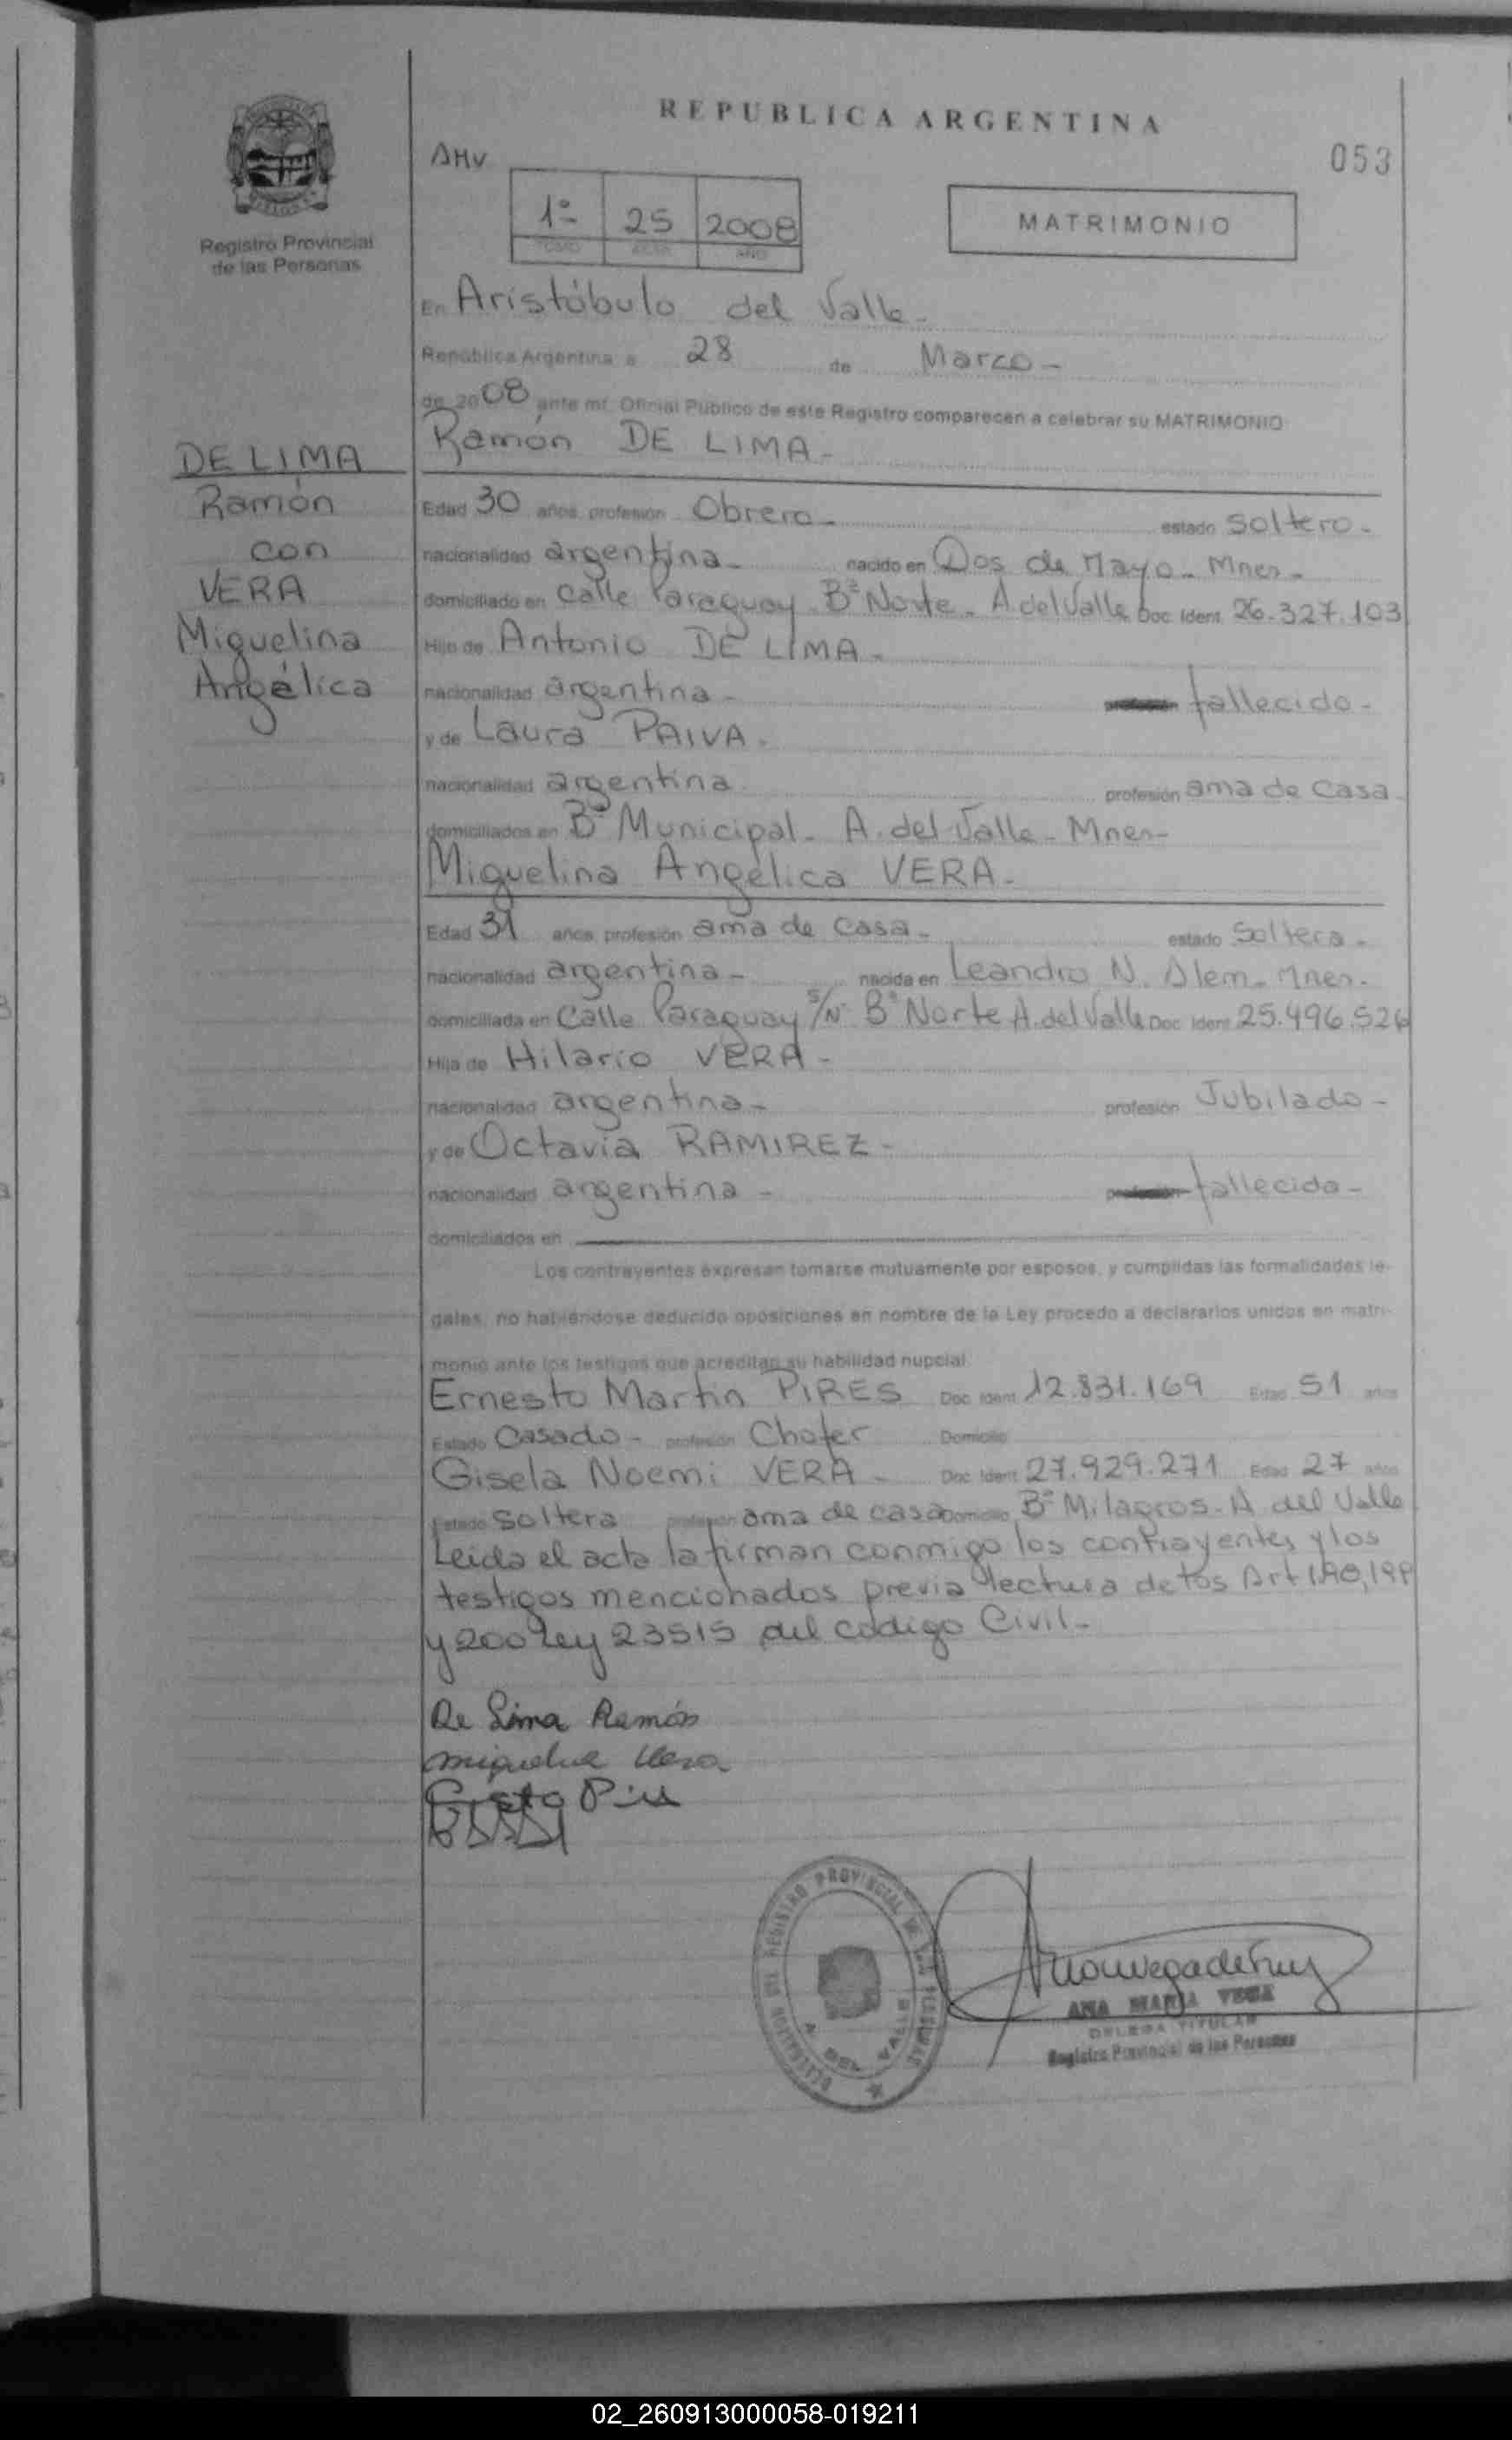 REPUBLICA ARGENTINA
AMV
053
1º 25 2008
TOMO ACTA AÑO
MATRIMONIO
Registro Provincial
de las Personas
En Aristóbulo del Valle-
República Argentina a 28 de Marzo-
de 2008 ante mí, Oficial Público de este Registro comparecen a celebrar su MATRIMONIO
Ramón DE LIMA-
DE LIMA
Ramón
con
VERA
Miguelina
Angélica
Edad 30 años, profesión Obrero- estado Soltero-
nacionalidad argentina- nacido en Dos de Mayo- Mnes-
domiciliado en Calle Paraguay Bº Norte- A.del Valle Doc. Ident. 26.327.103
Hijo de Antonio DE LIMA-
nacionalidad argentina- fallecido-
y de Laura PAIVA-
nacionalidad argentina profesión ama de Casa-
domiciliados en Bº Municipal- A. del Valle- Mnes-
Miguelina Angélica VERA-
Edad 31 años, profesión ama de casa- estado Soltera-
nacionalidad argentina- nacida en Leandro N. Alem- Mnes-
domiciliada en Calle Paraguay S/Nº Bº Norte A.del Valle Doc. Ident. 25.496.526
Hija de Hilario VERA-
nacionalidad argentina- profesión Jubilado-
y de Octavia RAMIREZ-
nacionalidad argentina- fallecida-
domiciliados en
Los contrayentes expresan tomarse mutuamente por esposos, y cumplidas las formalidades le-
gales, no habiéndose deducido oposiciones en nombre de la Ley procedo a declararlos unidos en matri-
monio ante los testigos que acreditan su habilidad nupcial
Ernesto Martin PIRES Doc. Ident. 12.831.169 Edad 51 años
Estado Casado- profesión Chofer Domicilio
Gisela Noemi VERA- Doc. Ident. 27.929.271 Edad 27 años
Estado Soltera profesión ama de casa Domicilio Bº Milagros- A. del Valle
Leida el acta la firman conmigo los contrayentes y los
testigos mencionados previa lectura de los Art 198, 199
y 200 Ley 23515 del codigo Civil-
De Lima Ramón
Miguelina Vera
DELEGACION DEL REGISTRO PROVINCIAL DE LAS PERSONAS
A. DEL VALLE
ANA MARIA VEGA
DELEGA TITULAR
Registro Provincial de las Personas
02_260913000058-019211